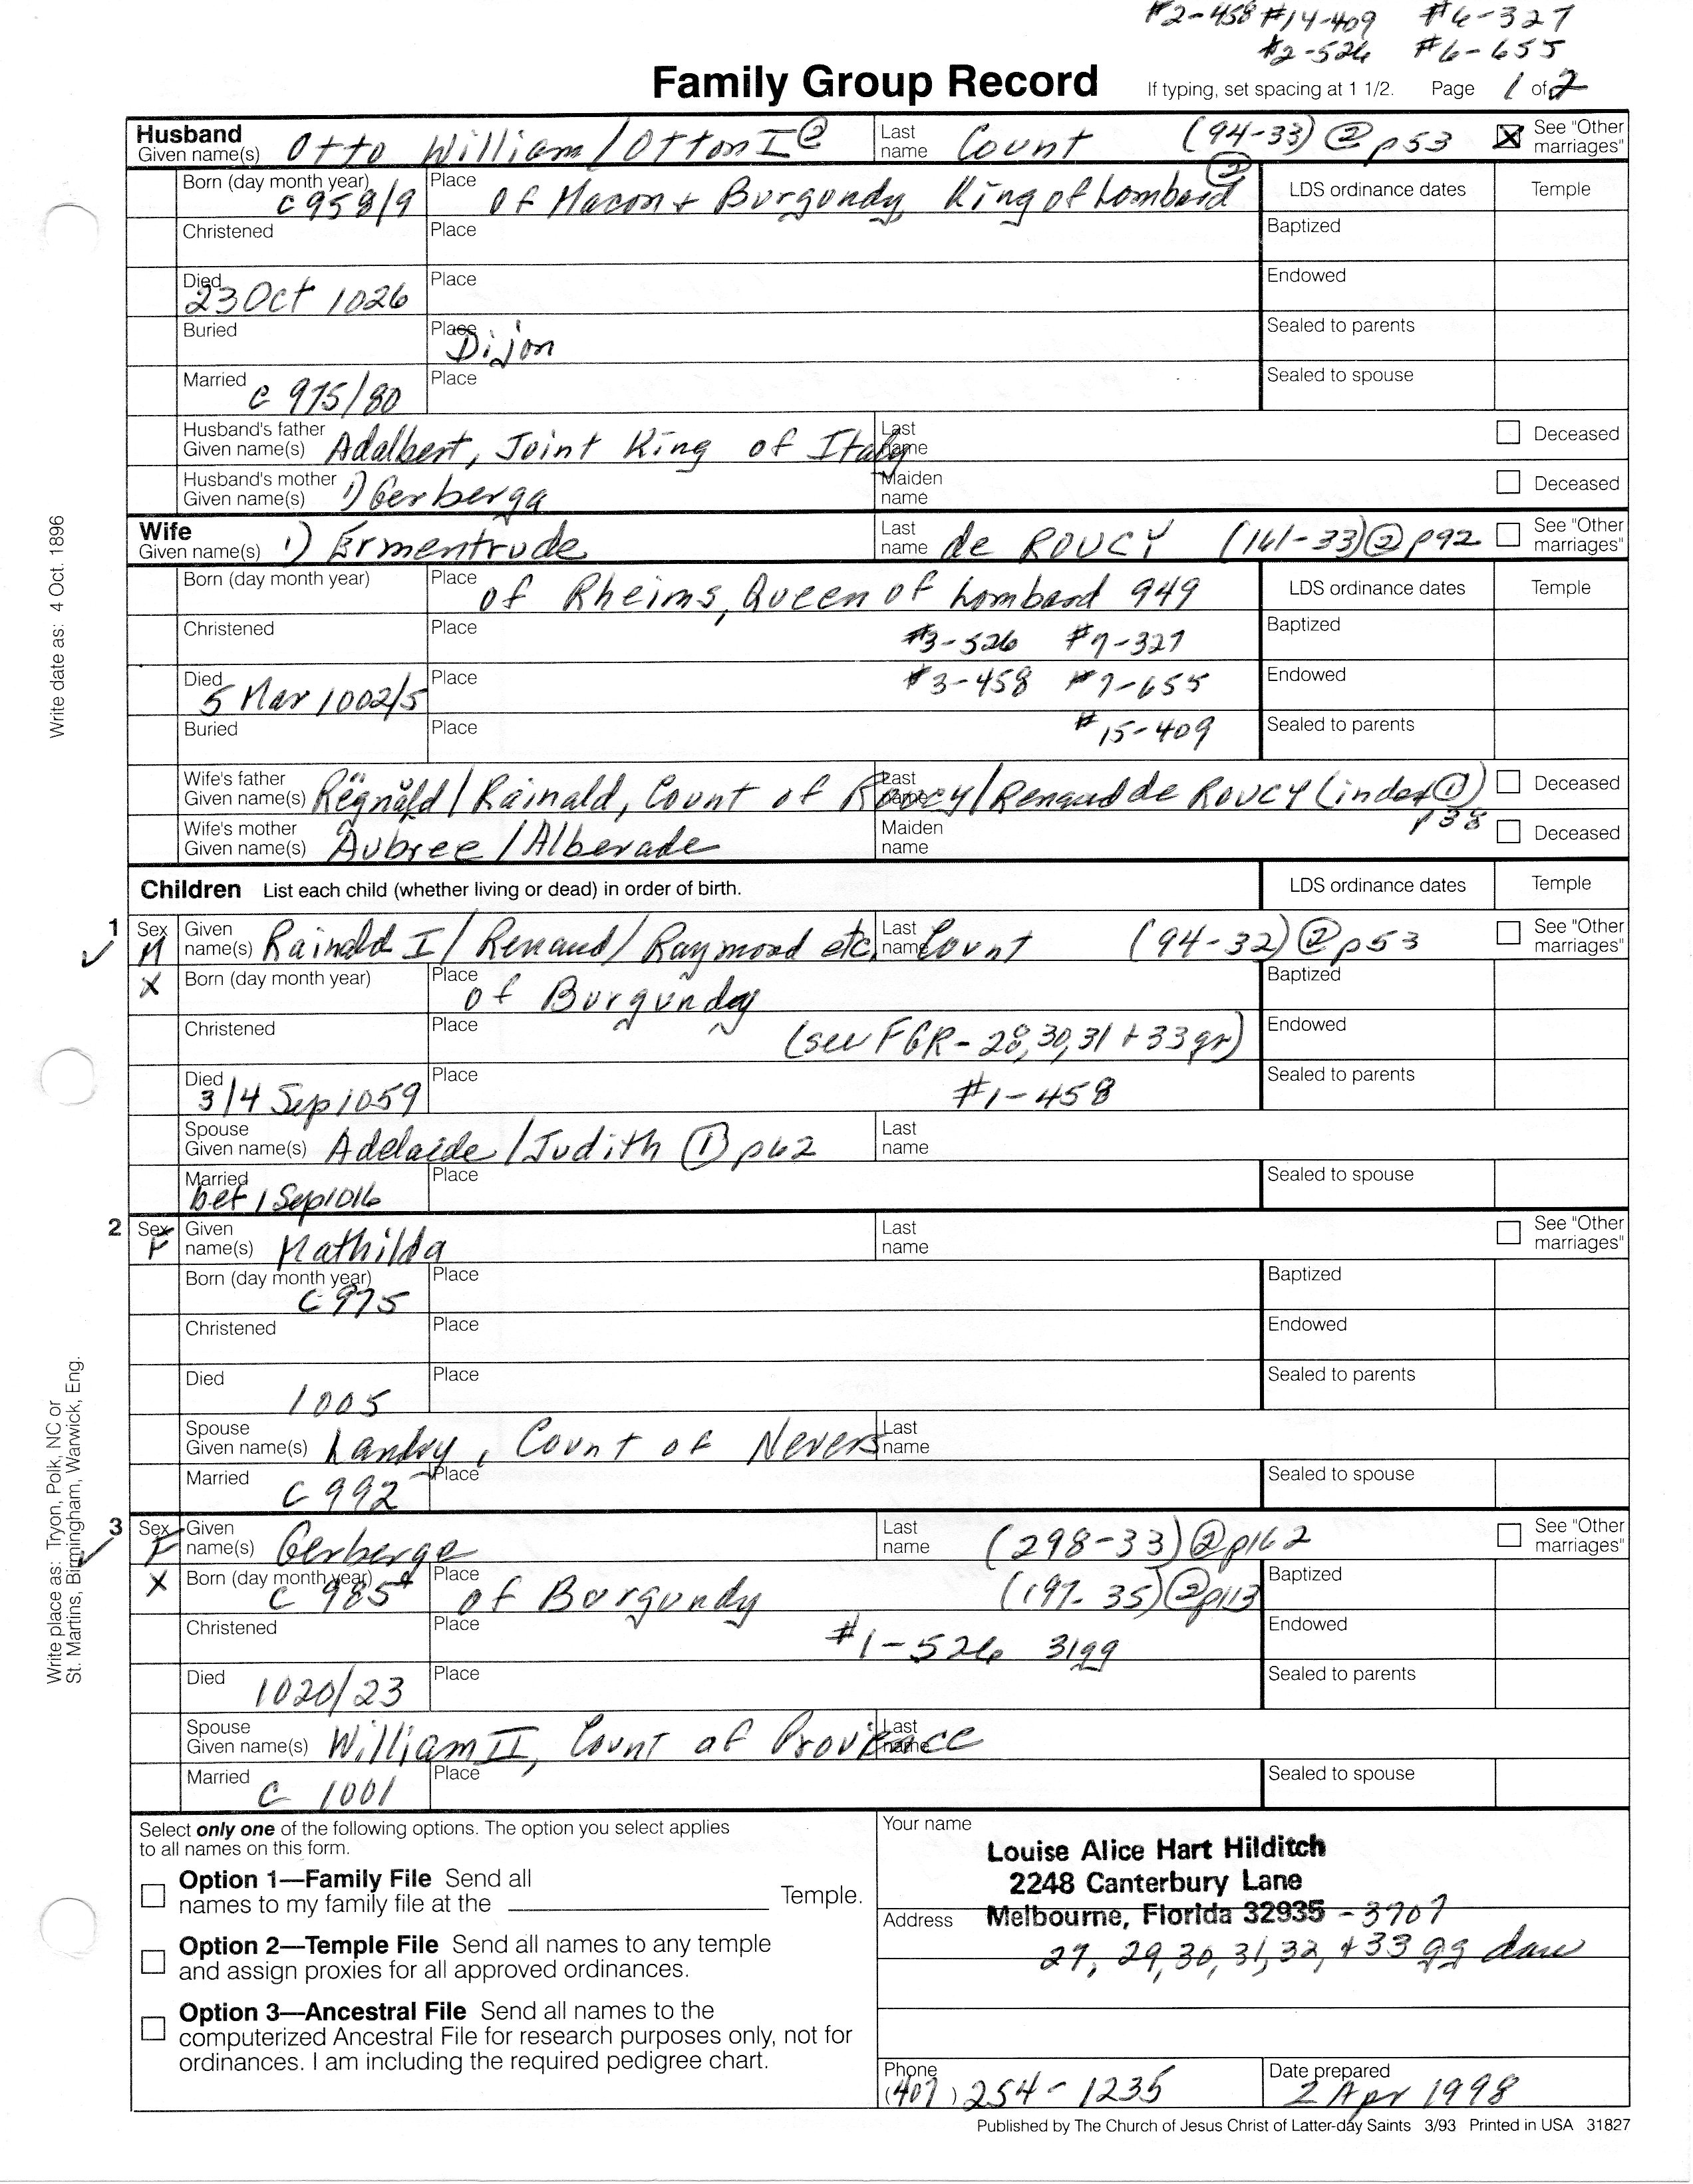 #2-458 #14-409 #6-327
#2-526 #6-655
Family Group Record If typing, set spacing at 1 1/2. Page 1 of 2
Husband Given name(s) Otto William/Otton I ② Last name Count (94-33) ② p53 See "Other marriages"
Born (day month year) c 958/9 Place of Macon + Burgundy, King of Lombard ② LDS ordinance dates Temple
Christened Place Baptized
Died 23 Oct 1026 Place Endowed
Buried Place Dijon Sealed to parents
Married c 975/80 Place Sealed to spouse
Husband's father Given name(s) Adalbert, Joint King of Italy Last name Deceased
Husband's mother Given name(s) 1) Gerberga Maiden name Deceased
Wife Given name(s) 1) Ermentrude Last name de ROUCY (161-33) ② p92 See "Other marriages"
Born (day month year) Place of Rheims, Queen of Lombard 949 LDS ordinance dates Temple
Christened Place #3-526 #7-327 Baptized
Died 5 Mar 1002/5 Place #3-458 #7-655 Endowed
Buried Place #15-409 Sealed to parents
Wife's father Given name(s) Regnald/Rainald, Count of Roucy/Renaud de ROUCY (index ①) p38 Last name Deceased
Wife's mother Given name(s) Aubree/Alberade Maiden name Deceased
Children List each child (whether living or dead) in order of birth. LDS ordinance dates Temple
1 Sex M Given name(s) Rainald I/Renaud/Raymond etc. Last name Count (94-32) ② p53 See "Other marriages"
X Born (day month year) Place of Burgundy Baptized
Christened Place (see FGR-28,30,31 + 33 gr) Endowed
Died 3/4 Sep 1059 Place #1-458 Sealed to parents
Spouse Given name(s) Adelaide/Judith ① p62 Last name
Married bef 1 Sep 1016 Place Sealed to spouse
2 Sex F Given name(s) Mathilda Last name See "Other marriages"
Born (day month year) c 975 Place Baptized
Christened Place Endowed
Died 1005 Place Sealed to parents
Spouse Given name(s) Landry, Count of Nevers Last name
Married c 992 Place Sealed to spouse
3 Sex F Given name(s) Gerberge Last name (298-33) ② p162 See "Other marriages"
X Born (day month year) c 985 Place of Burgundy (197-35) ② p113 Baptized
Christened Place #1-526 31gg Endowed
Died 1020/23 Place Sealed to parents
Spouse Given name(s) William II, Count of Provence Last name
Married c 1001 Place Sealed to spouse
Select only one of the following options. The option you select applies
to all names on this form.
Option 1—Family File Send all
names to my family file at the Temple.
Option 2—Temple File Send all names to any temple
and assign proxies for all approved ordinances.
Option 3—Ancestral File Send all names to the
computerized Ancestral File for research purposes only, not for
ordinances. I am including the required pedigree chart.
Your name
Louise Alice Hart Hilditch
2248 Canterbury Lane
Address Melbourne, Florida 32935 - 3707
27, 29, 30, 31, 32, + 33 gg dau
Phone (407) 254-1235 Date prepared 2 Apr 1998
Published by The Church of Jesus Christ of Latter-day Saints 3/93 Printed in USA 31827
Write date as: 4 Oct. 1896
Write place as: Tryon, Polk, NC or
St. Martins, Birmingham, Warwick, Eng.